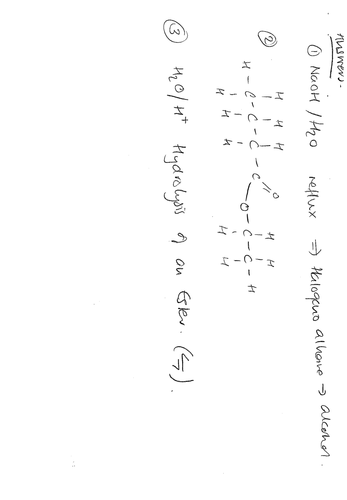 Answers.
① NaOH / H2O reflux ⇒ Halogeno alkane → alcohol.
②
H H H O H H
H - C - C - C - C = O - C - C - H
H H H H H
③ H2O/H+ Hydrolysis of an Ester. (⇆).